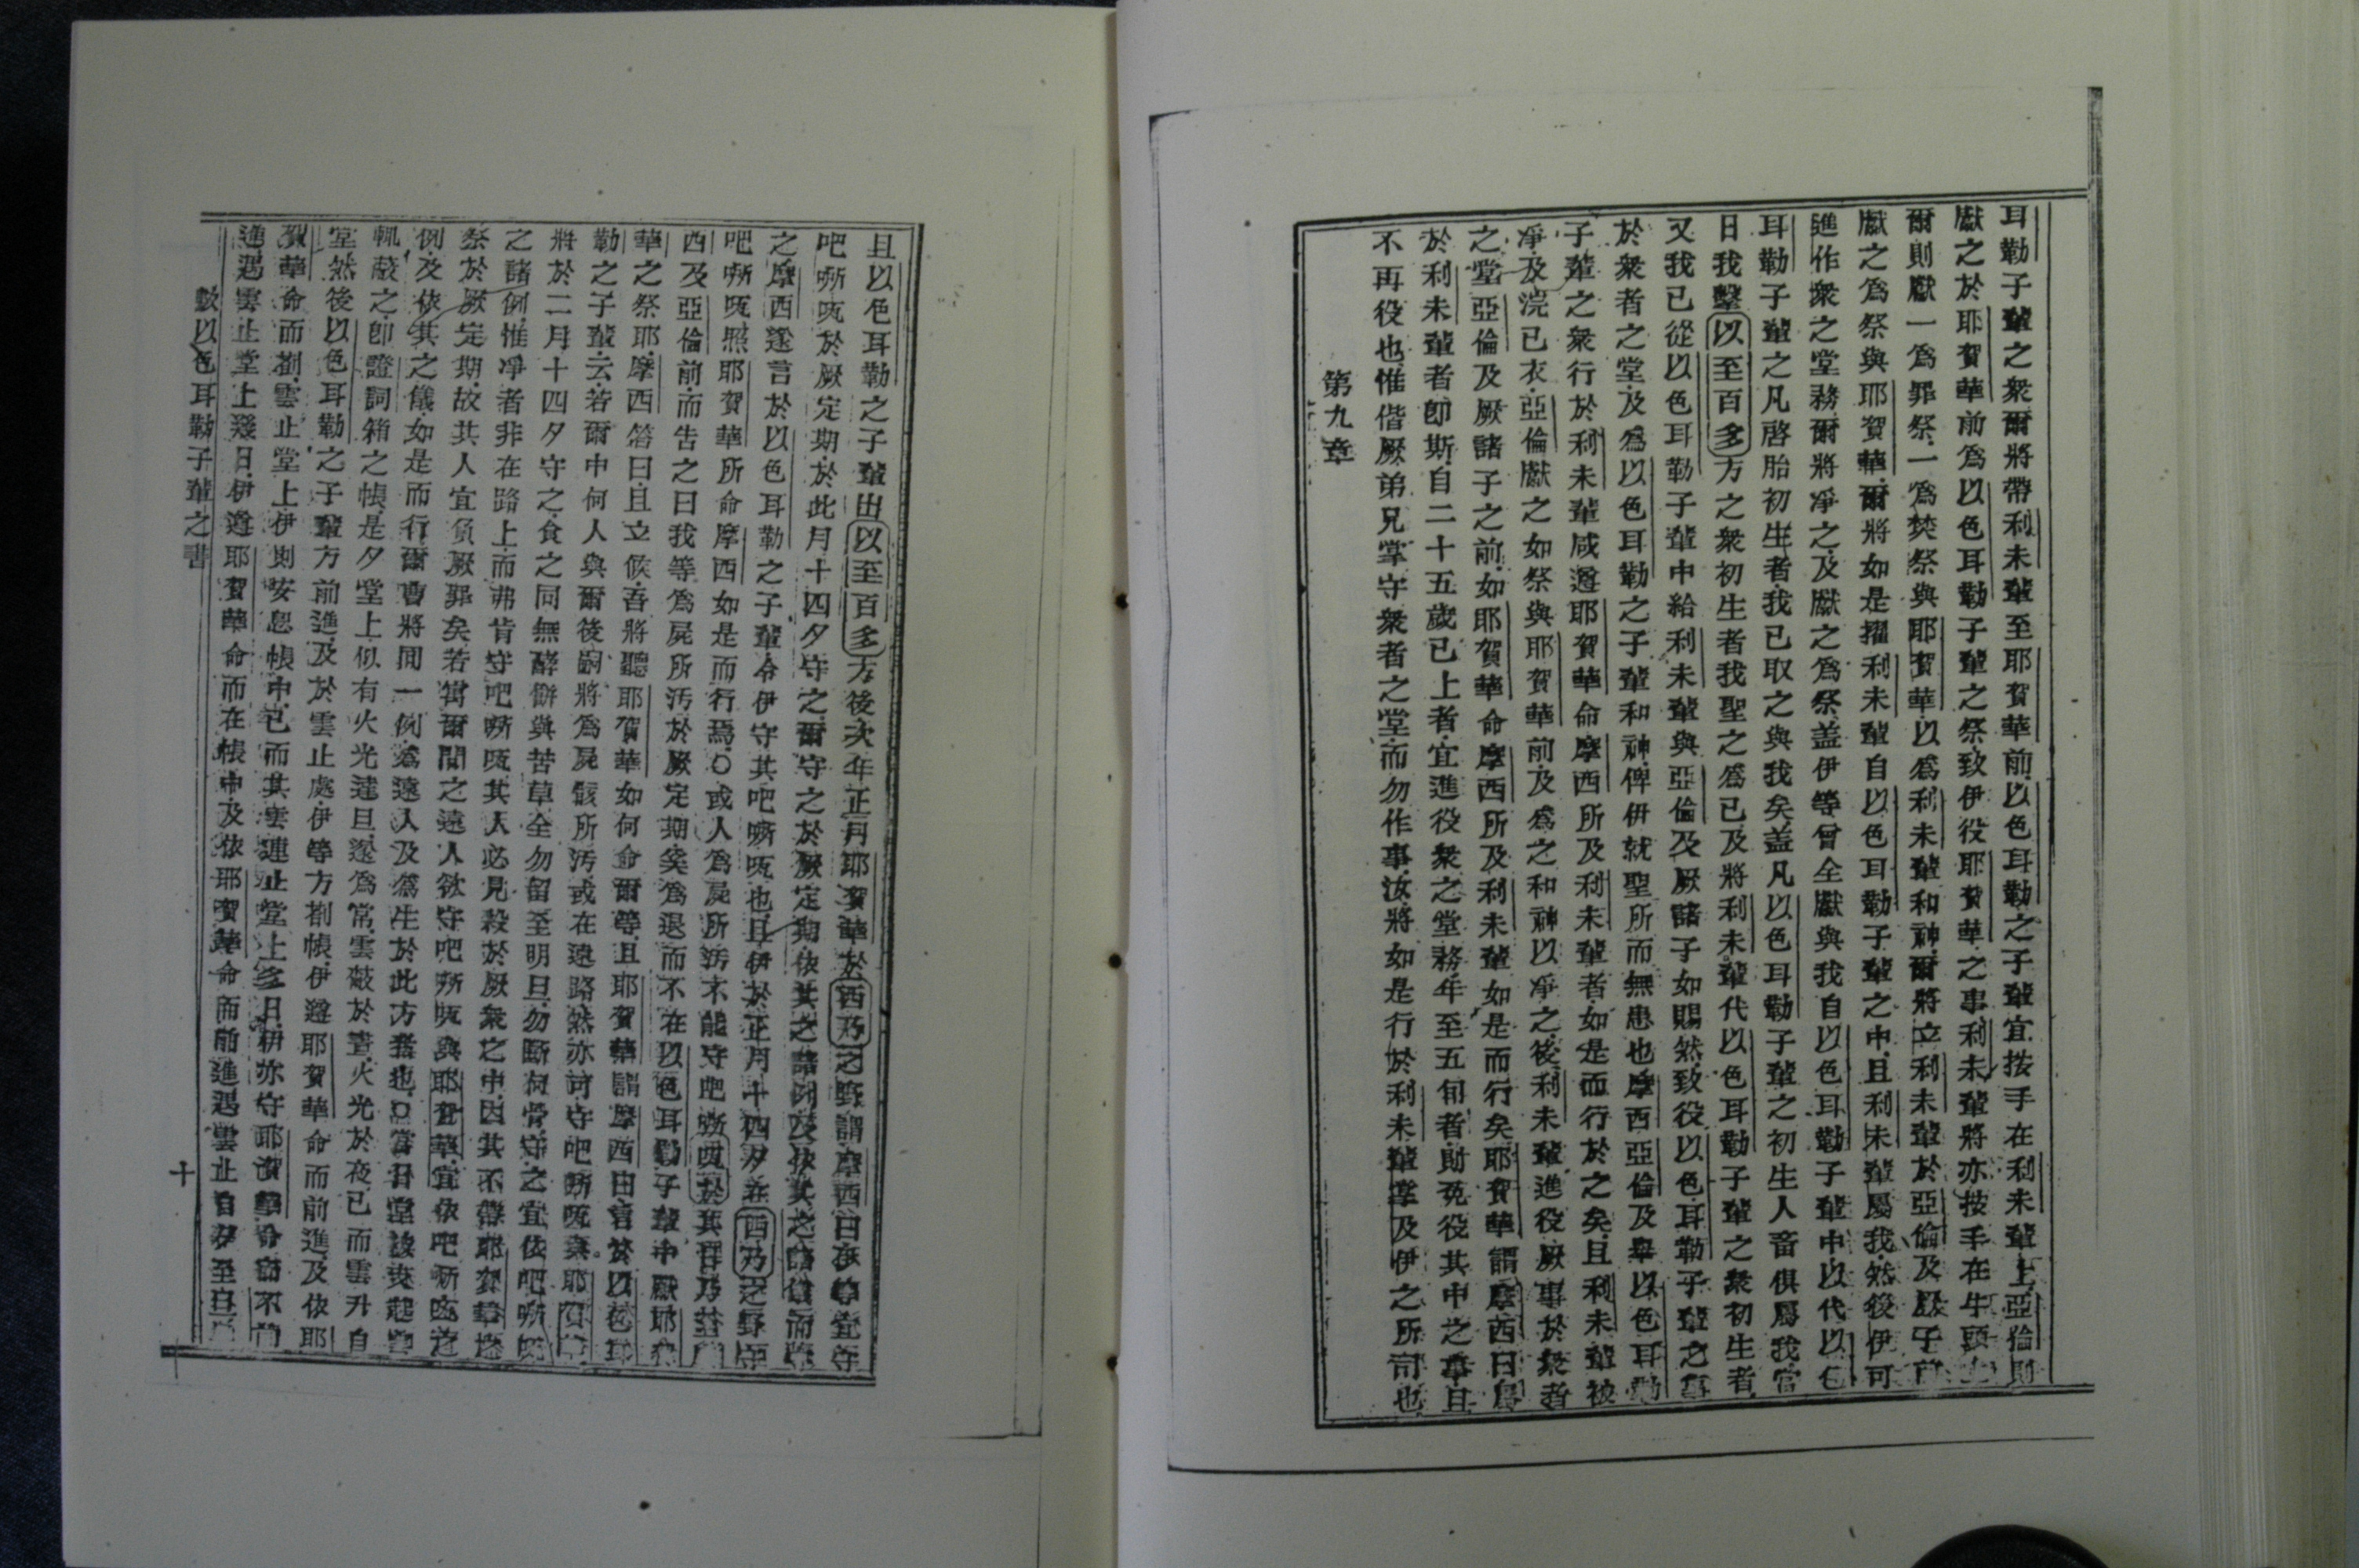 耳勒子輩之衆爾將帶利未輩至耶賀華前以色耳勒之子輩宜按手在利未輩上亞倫則
獻之於耶賀華前爲以色耳勒子輩之祭致伊役耶賀華之事利未輩將亦按手在牛頭上
爾則獻一爲罪祭一爲焚祭與耶賀華以爲利未輩和神爾將立利未輩於亞倫及厥子前
獻之爲祭與耶賀華爾將如是擢利未輩自以色耳勒子輩之中且利未輩屬我然後伊可
進作衆之堂務爾將凈之及獻之爲祭蓋伊等曾全獻與我自以色耳勒子輩中以代以色
耳勒子輩之凡啓胎初生者我已取之與我矣蓋凡以色耳勒子輩之初生人畜俱屬我當
日我擊以至百多方之衆初生者我聖之爲已及將利未輩代以色耳勒子輩之衆初生者
又我已從以色耳勒子輩中給利未輩與亞倫及厥諸子如賜然致役以色耳勒子輩之事
於衆者之堂及爲以色耳勒之子輩和神俾伊就聖所而無患也摩西亞倫及舉以色耳勒
子輩之衆行於利未輩咸遵耶賀華命摩西所及利未輩者如是而行於之矣且利未輩被
凈及浣已衣亞倫獻之如祭與耶賀華前及爲之和神以凈之後利未輩進役厥事於衆者
之堂亞倫及厥諸子之前如耶賀華命摩西所及利未輩如是而行矣耶賀華謂摩西曰屬
於利未輩者卽斯自二十五歲已上者宜進役衆之堂務年至五旬者則免役其中之事且
不再役也惟偕厥弟兄掌守衆者之堂而勿作事汝將如是行於利未輩掌及伊之所司也
第九章
且以色耳勒之子輩出以至百多方後次年正月耶賀華於西乃之野謂摩西曰
吧嘶㕖於厥定期於此月十四夕守之爾守之於厥定期依其之諸例及依其之諸儀而
之摩西遂言於以色耳勒之子輩令伊守其吧嘶㕖也且伊於正月十四夕在西乃之野守
吧嘶㕖照耶賀華所命摩西如是而行焉○或人爲屍所汚不能守吧嘶
西及亞倫前而告之曰我等爲屍所汚於厥定期奚爲退而不在以色耳勒子輩中獻耶賀
華之祭耶摩西答曰且立候吾將聽耶賀華如何命爾等且耶賀華謂摩西曰言於以色耳
勒之子輩云若爾中何人與爾後嗣將爲屍骸所汚或在遠路然亦可守吧嘶㕖與耶賀華
將於二月十四夕守之食之同無酵餅與苦草全勿留至明旦勿斷何骨守之宜依吧嘶㕖
之諸例惟凈者非在路上而弗肯守吧嘶㕖其人必見殺於厥衆之中因其不帶耶賀華
祭於厥定期故其人宜負厥罪矣若寓爾間之遠人欲守吧嘶㕖與耶賀華宜依吧嘶㕖之
例及依其之儀如是而行爾曹將同一例爲遠人及爲生於此方者也○當日堂被奕起雲
輒蔽之卽證詞箱之帳是夕堂上似有火光達旦遂爲常雲蔽於晝火光於夜已而雲升自
堂然後以色耳勒之子輩方前進及於雲止處伊等方劄帳伊遵耶賀華命而前進及依耶
賀華命而劄雲止堂上伊則安息帳中已而其雲連止堂上多日伊亦守耶賀華命而不前
進遇雲止堂上幾日伊遵耶賀華命而在帳中及依耶賀華命而前進遇雲止自夕至旦
數以色耳勒子輩之書
十